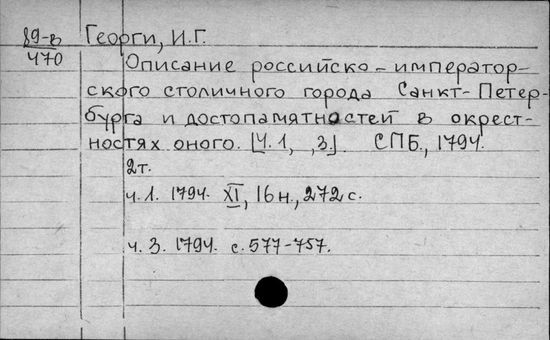 89-в Георги, И.Г.
470
Описание российско-император-
ского столичного города Санкт-Петер-
бурга и достопамятностей в окрест-
ностях оного. [Ч.1, ,3.] СПБ., 1794.
2т.
ч.1. 1794. XI, 16н., 272с.
ч.3. 1794. с.577-757.